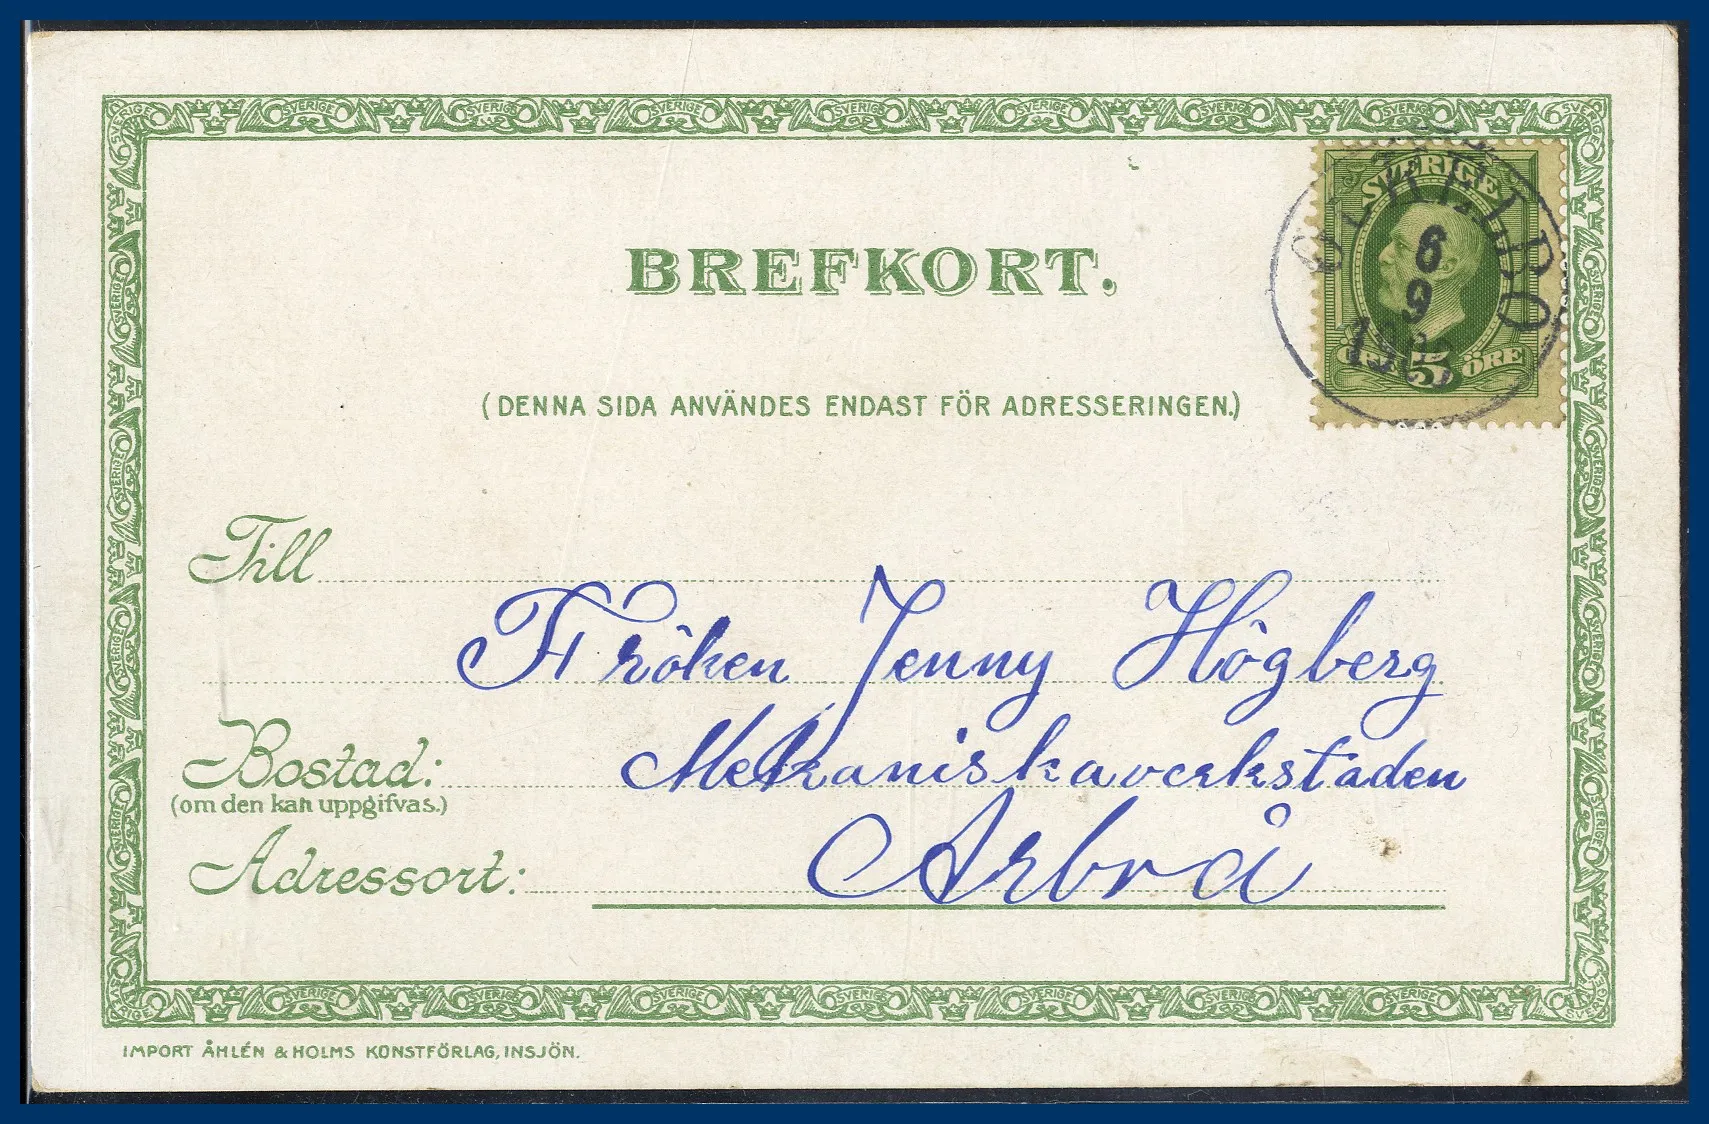 SVERIGE
OCKELBO
6
9
ÖRE 5 ÖRE
BREFKORT.
(DENNA SIDA ANVÄNDES ENDAST FÖR ADRESSERINGEN.)
Till
Fröken Jenny Högberg
Bostad: Mekaniskaverkstaden
(om den kan uppgifvas.)
Adressort: Arbrå
IMPORT ÅHLÉN & HOLMS KONSTFÖRLAG, INSJÖN.